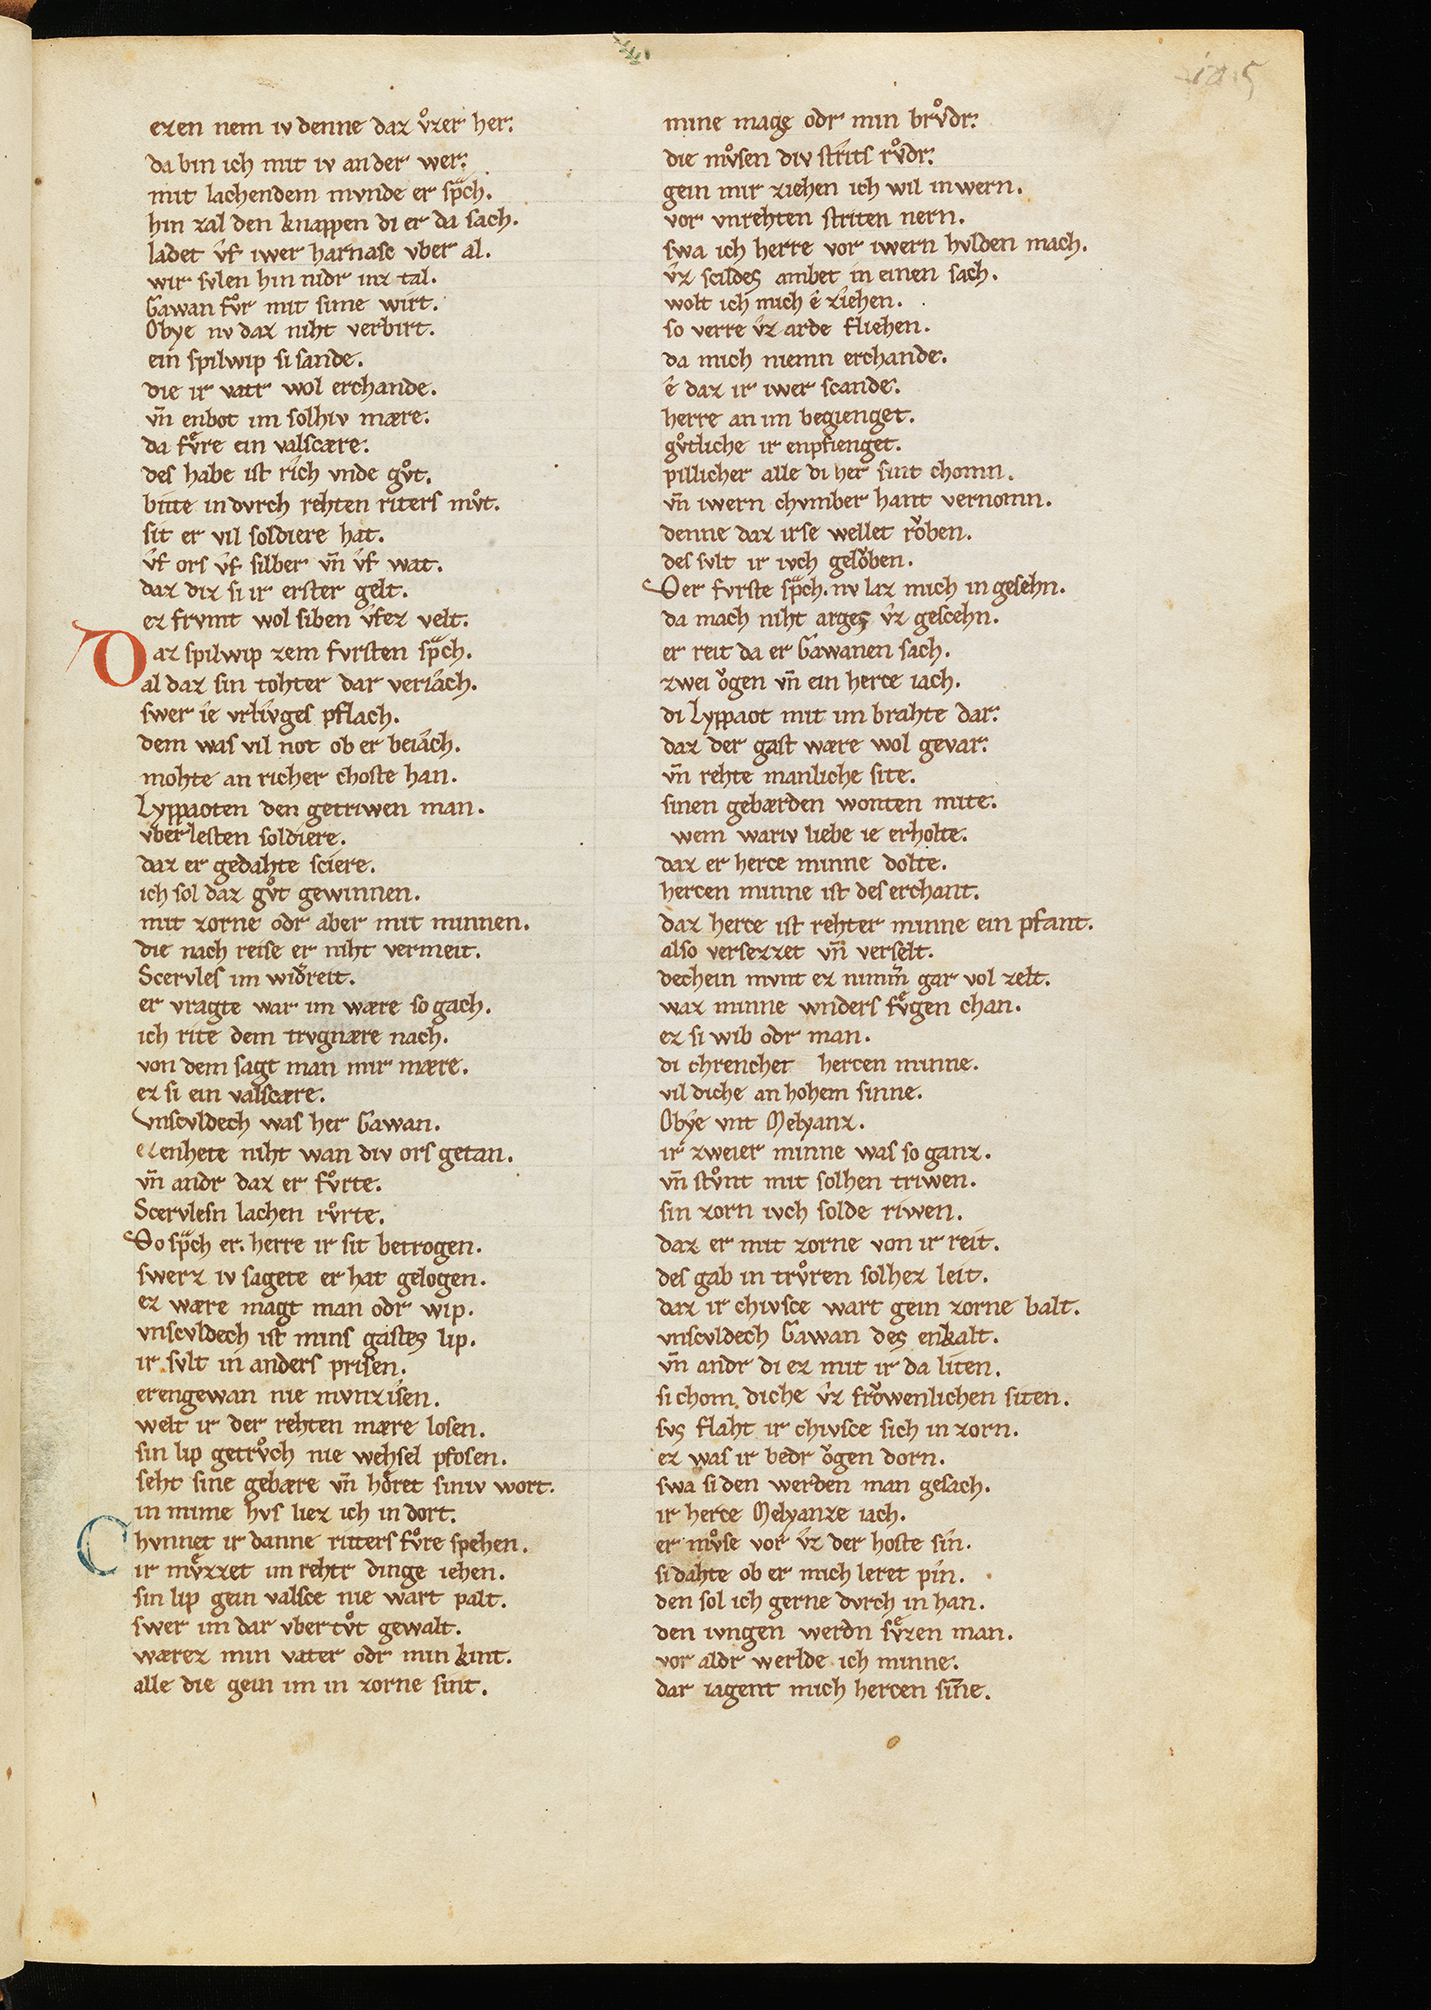 ezen nem iv denne daz v̊zer her.
da bin ich mit iv an der wer.
mit lachendem mvnde er spͣch.
hin zal den knappen di er da sach.
ladet v̂f iwer harnasc vber al.
wir svlen hin nidr inz tal.
Gawan fv̊r mit sime wirt.
Obye nv daz niht verbirt.
ein spilwip si sande.
die ir vatr wol erchande.
vn̄ enbot im solhiv mære.
da fv̊re ein valscære.
des habe ist rich vnde gv̊t.
bitte in dvrch rehten riters mv̊t.
sit er vil soldiere hat.
v̂f ors v̂f silber vn̄ v̂f wat.
daz diz si ir erster gelt.
ez frvmt wol siben v̂fez velt.
Daz spilwip zem fvrsten spͣch.
al daz sin tohter dar veriâch.
swer ie vrlivges pflach.
dem was vil not ob er beiâch.
mohte an richer choste han.
Lyppaoten den getriwen man.
vberlesten soldiere.
daz er gedahte sciere.
ich sol daz gv̊t gewinnen.
mit zorne odr aber mit minnen.
die nach reise er niht vermeit.
Scervles im widͤreit.
er vragte war im wære so gach.
ich rite dem trvgnære nach.
von dem sagt man mir mære.
ez si ein valscære.
vnscvldech was her Gawan.
ezenhete niht wan div ors getan.
vn̄ andr daz er fv̊rte.
Scervlesn lachen rv̊rte.
Do spͣch er. herre ir sit betrogen.
swerz iv sagete er hat gelogen.
ez wære magt man odr wip.
vnscvldech ist mins gastes lip.
ir svlt in anders prisen.
erengewan nie mvnzisen.
welt ir der rehten mære losen.
sin lip getrv̊ch nie wehsel pfosen.
seht sine gebære vn̄ hoͤret siniv wort.
in mime hvs liez ich in dort.
Chvnnet ir danne ritters fv̊re spehen.
ir mvͤzzet im rehtr dinge iehen.
sin lip gein valsce nie wart palt.
swer im dar vber tv̊t gewalt.
wærez min vater odr min kint.
alle die gein im in zorne sint.
mine mage odr min brv̊dr.
die mv̊sen div strits rv̊dr.
gein mir ziehen ich wil in wern.
vor vnrehten striten nern.
swa ich herre vor iwern hvlden mach.
v̂z scildes ambet in einen sach.
wolt ich mich ê ziehen.
so verre v̂z arde fliehen.
da mich niemn erchande.
ê daz ir iwer scande.
herre an im begienget.
gv̊tliche ir enpfienget.
pillicher alle di her sint chomn.
vn̄ iwern chvmber hant vernomn.
denne daz irse wellet roͮben.
des svlt ir ivch geloͮben.
Der fvrste spͣch. nv laz mich in gesehn.
da mach niht arges v̂z gescehn.
er reit da er Gawanen sach.
zwei oͮgen vn̄ ein herce iach.
di Lyppaot mit im brahte dar.
daz der gast wære wol gevar.
vn̄ rehte manliche site.
sinen gebærden wonten mite.
wem wariv liebe ie erholte.
daz er herce minne dolte.
hercen minne ist des erchant.
daz herce ist rehter minne ein pfant.
also versezzet vn̄ verselt.
dechein mvnt ez nimm̄ gar vol zelt.
waz minne wnders fvͤgen chan.
ez si wib odr man.
di chrenchet hercen minne.
vil diche an hohem sinne.
Obye vnt Melyanz.
ir zweier minne was so ganz.
vn̄ stv̊nt mit solhen triwen.
sin zorn ivch solde riwen.
daz er mit zorne von ir reit.
des gab in trv̊ren solhez leit.
daz ir chivsce wart gein zorne balt.
vnscvldech Gawan des enkalt.
vn̄ andr di ez mit ir da liten.
si chom diche v̂z froͮwenlichen siten.
svs flaht ir chivsce sich in zorn.
ez was ir bedr oͮgen dorn.
swa si den werden man gesach.
ir herce Melyanze iach.
er mv̊se vor v̂z der hoste sin.
si dahte ob er mich leret pin.
den sol ich gerne dvrch in han.
den ivngen werdn svͤzen man.
vor aldr werlde ich minne.
dar iagent mich hercen sin̄e.